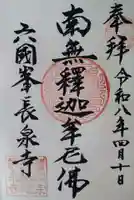 奉拜
令和八年四月十日
南無釋迦牟尼佛
六國峯長泉寺